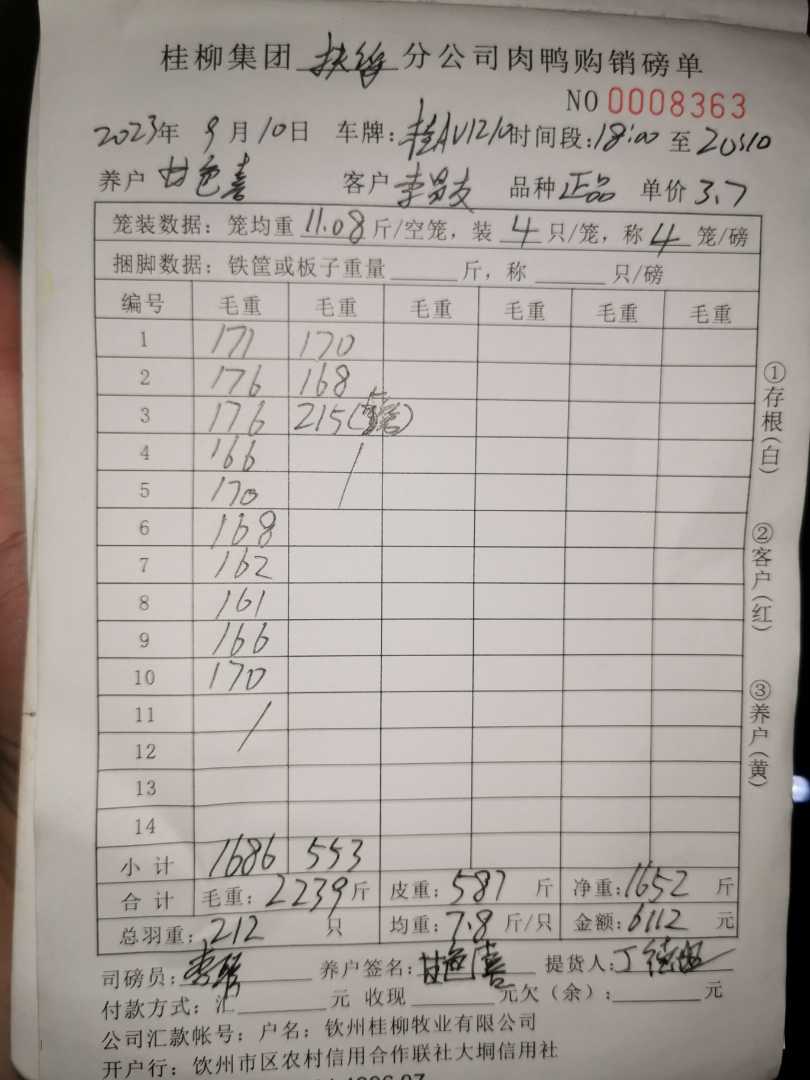 桂柳集团 扶绥 分公司肉鸭购销磅单
NO 0008363
2023年 9月10日 车牌：桂AV1210 时间段：18:00 至 20:10
养户 甘色喜 客户 李昌支 品种 正品 单价 3.7
笼装数据：笼均重 11.08 斤/空笼，装 4 只/笼，称 4 笼/磅
捆脚数据：铁筐或板子重量 斤，称 只/磅
编号 毛重 毛重 毛重 毛重 毛重 毛重
1 171 170
2 176 168
3 176 215
4 166 /
5 170
6 168
7 162
8 161
9 166
10 170
11 /
12
13
14
小计 1686 553
合计 毛重：2239斤 皮重：587 斤 净重：1652 斤
总羽重：212 只 均重：7.8 斤/只 金额：6112 元
司磅员： 养户签名：甘色喜 提货人：
付款方式：汇 元 收现 元欠（余）： 元
公司汇款帐号：户名：钦州桂柳牧业有限公司
开户行：钦州市区农村信用合作联社大垌信用社
①存根（白）
②客户（红）
③养户（黄）